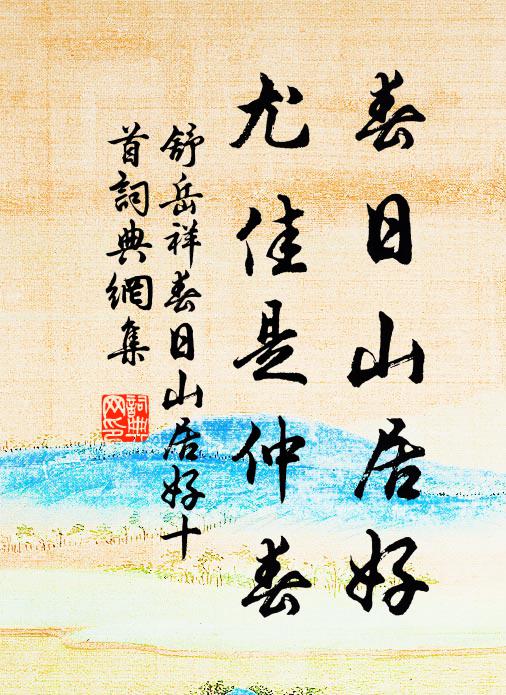 春日山居好
尤佳是仲春
舒岳祥春日山居好十
首詞典網集
詞典
网印